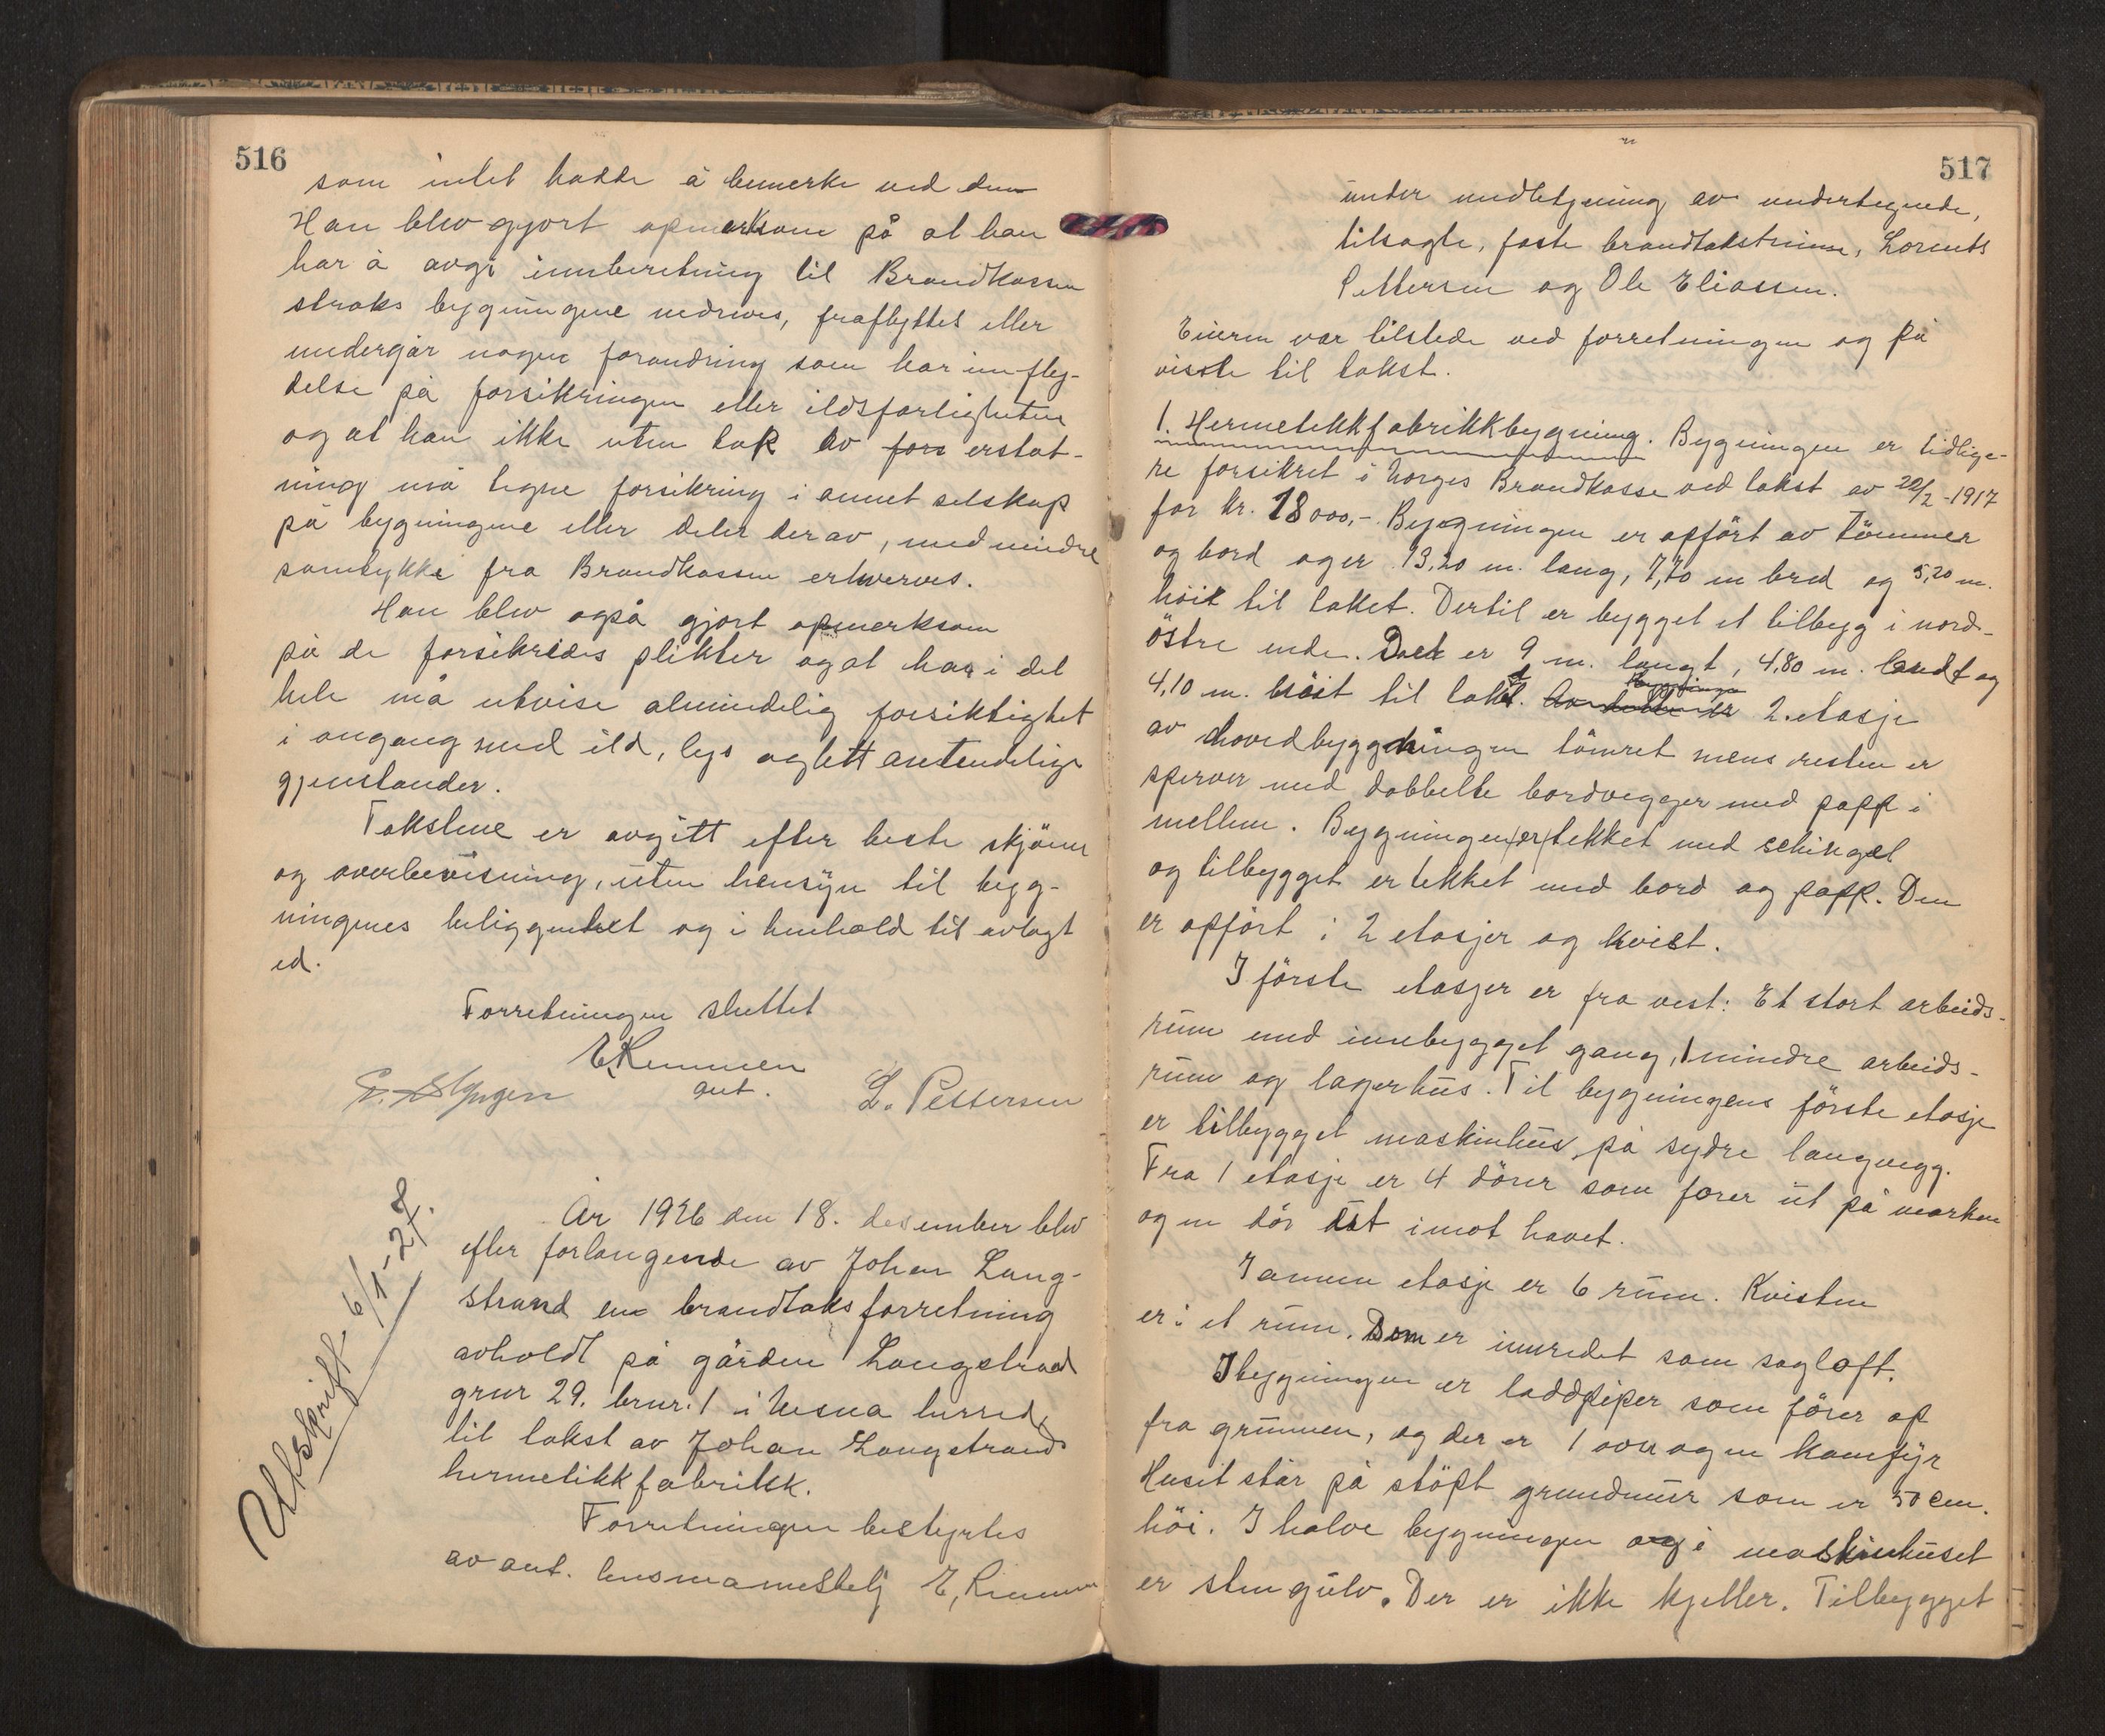 516
som intet hadde å bemerke ved dem
Han blev gjort opmerksom på at han
har å avgi innberetning til Brandkassen
straks bygningene nedrives, fraflyttet eller
undergår nogen forandring som har innfly-
delse på forsikringen eller ildsfarligheten
og at han ikke uten tap av fors erstat-
ning må tegne forsikring i annet selskap
på bygningene eller deler derav, med mindre
samtykke fra Brandkassen erhverves.
Han blev også gjort opmerksom
på de forsikredes plikter og at han i det
hele må utvise almindelig forsiktighet
i omgang med ild, lys og lett antendelige
gjenstander.
Takstene er avgitt efter beste skjönn
og overbevisning, uten hensyn til byg-
ningenes beliggenhet og i henhold til avlagt
ed.
Forretningen sluttet
E. Remmen
aut.
L. Pettersen
Utskrift 6/1-27.
År 1926 den 18. desember blev
efter forlangende av Johan Lang-
strand en brandtaksforretning
avholdt på gården Langstrand
gnr 29. brnr. 1 i Nesna herred,
til takst av Johan Langstrands
hermetikkfabrikk.
Forretningen bestyrtes
av aut. lensmannsbetj E. Remmen
517
under medbetjening av undertegnede,
tilsagte, faste brandtakstmenn, Lorents
Pettersen og Ole Eliassen.
Eieren var tilstede ved forretningen og på
viste til takst.
1. Hermetikkfabrikkbygning. Bygningen er tidlige-
re forsikret i Norges Brandkasse ved takst av 22/2-1917
for kr. 18000,-. Bygningen er opfört av tömmer
og bord og er 13,20 m. lang, 7,70 m bred og 5,20 m.
höit til taket. Dertil er bygget et tilbygg i nord-
östre ende. Det er 9 m. langt, 4,80 m. bredt og
4,10 m. höit til taket. 2. etasje
av hovedbygningen tömret mens resten er
sperver med dobbelte bordvegger med papp i
mellem. Bygningen er tekket med schingel
og tilbygget er tekket med bord og papp. Den
er opfört i 2 etasjer og kvist.
I förste etasjer er fra vest: Et stort arbeids-
rum med innbygget gang, 1 mindre arbeids-
rum og lagerhus. Til bygningens förste etasje
er tilbygget maskinhus på sydre langvegg.
Fra 1 etasje er 4 dörer som förer ut på marken
og en dör öst imot havet.
I annen etasje er 6 rum. Kvisten
er i et rum. Den er innredet som sagloft.
I bygningen er loddpiper som förer op
fra grunnen, og der er 1 ovn og en komfyr
Huset står på stöpt grundmur som er 50 cm.
höi. I halve bygningen og i maskinhuset
er stengulv. Der er ikke kjeller. Tilbygget